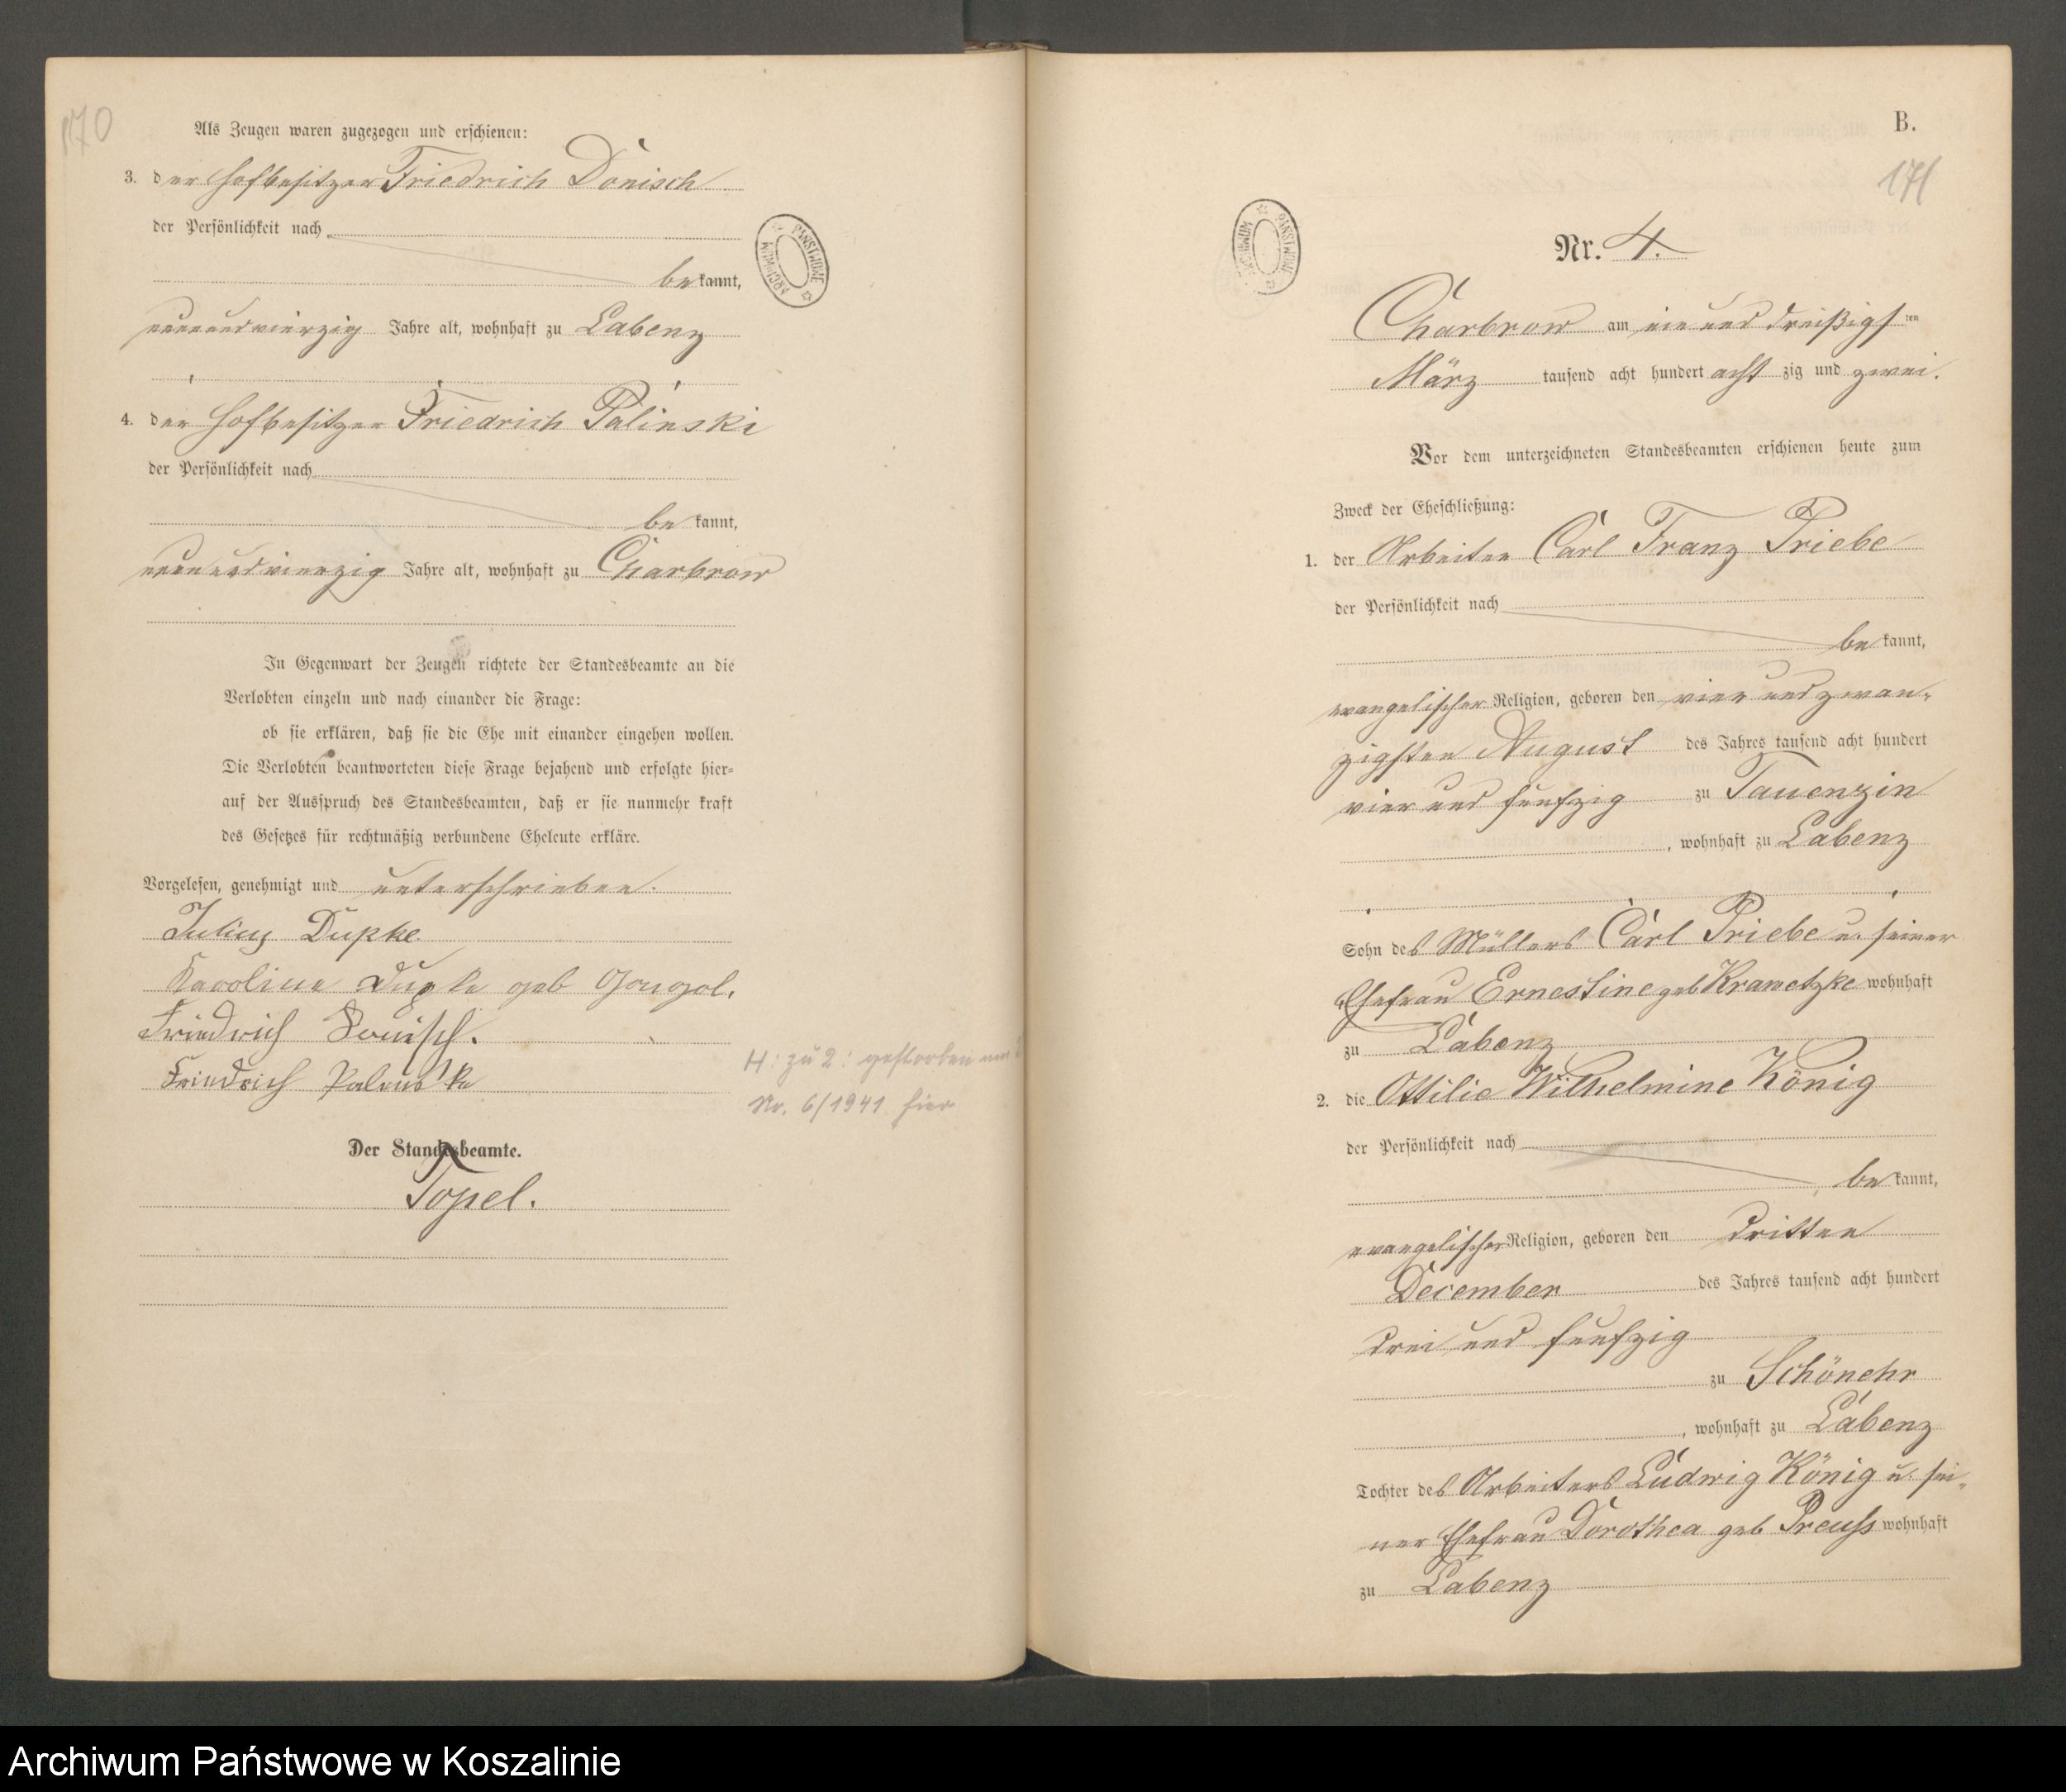 170
Als Zeugen waren zugezogen und erschienen:
3. der Hofbesitzer Friedrich Dönisch
der Persönlichkeit nach
bekannt,
neunundvierzig Jahre alt, wohnhaft zu Labenz
4. der Hofbesitzer Friedrich Palinski
der Persönlichkeit nach
be kannt,
neunundvierzig Jahre alt, wohnhaft zu Charbrow
In Gegenwart der Zeugen richtete der Standesbeamte an die
Verlobten einzeln und nach einander die Frage:
ob sie erklären, daß sie die Ehe mit einander eingehen wollen.
Die Verlobten beantworteten diese Frage bejahend und erfolgte hier-
auf der Ausspruch des Standesbeamten, daß er sie nunmehr kraft
des Gesetzes für rechtmäßig verbundene Eheleute erkläre.
Vorgelesen, genehmigt und unterschrieben.
Julius Dupke
Karoline Dupke geb
Friedrich Dönisch.
Friedrich
H: zu 2: gestorben am
Nr. 6/1941 hier
Der Standesbeamte.
Topel.
ARCHIWUM PAŃSTWOWE
B.
171
ARCHIWUM PAŃSTWOWE
Nr. 4.
Charbrow am ein und dreißigsten
März tausend acht hundert acht zig und zwei.
Vor dem unterzeichneten Standesbeamten erschienen heute zum
Zweck der Eheschließung:
1. der Arbeiter Carl Franz Priebe
der Persönlichkeit nach
be kannt,
evangelischer Religion, geboren den vier und zwan-
zigsten August des Jahres tausend acht hundert
vier und funfzig zu Tauenzin
, wohnhaft zu Labenz
Sohn des Müllers Carl Priebe u. seiner
Ehefrau Ernestine geb Krametzke wohnhaft
zu Labenz
2. die Ottilie Wilhelmine König
der Persönlichkeit nach
be kannt,
evangelischer Religion, geboren den dritten
December des Jahres tausend acht hundert
drei und funfzig
zu Schönehr
, wohnhaft zu Labenz
Tochter des Arbeiters Ludwig König u. sei-
ner Ehefrau Dorothea geb Preuss wohnhaft
zu Labenz
Archiwum Państwowe w Koszalinie